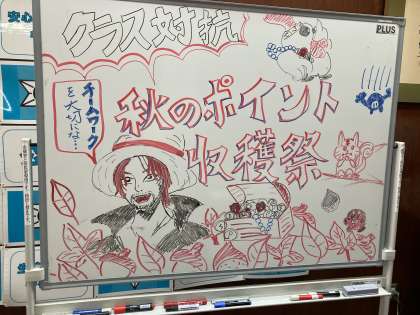 クラス対抗
PLUS
秋のポイント
収穫祭
チームワーク
を大切にな…
安心